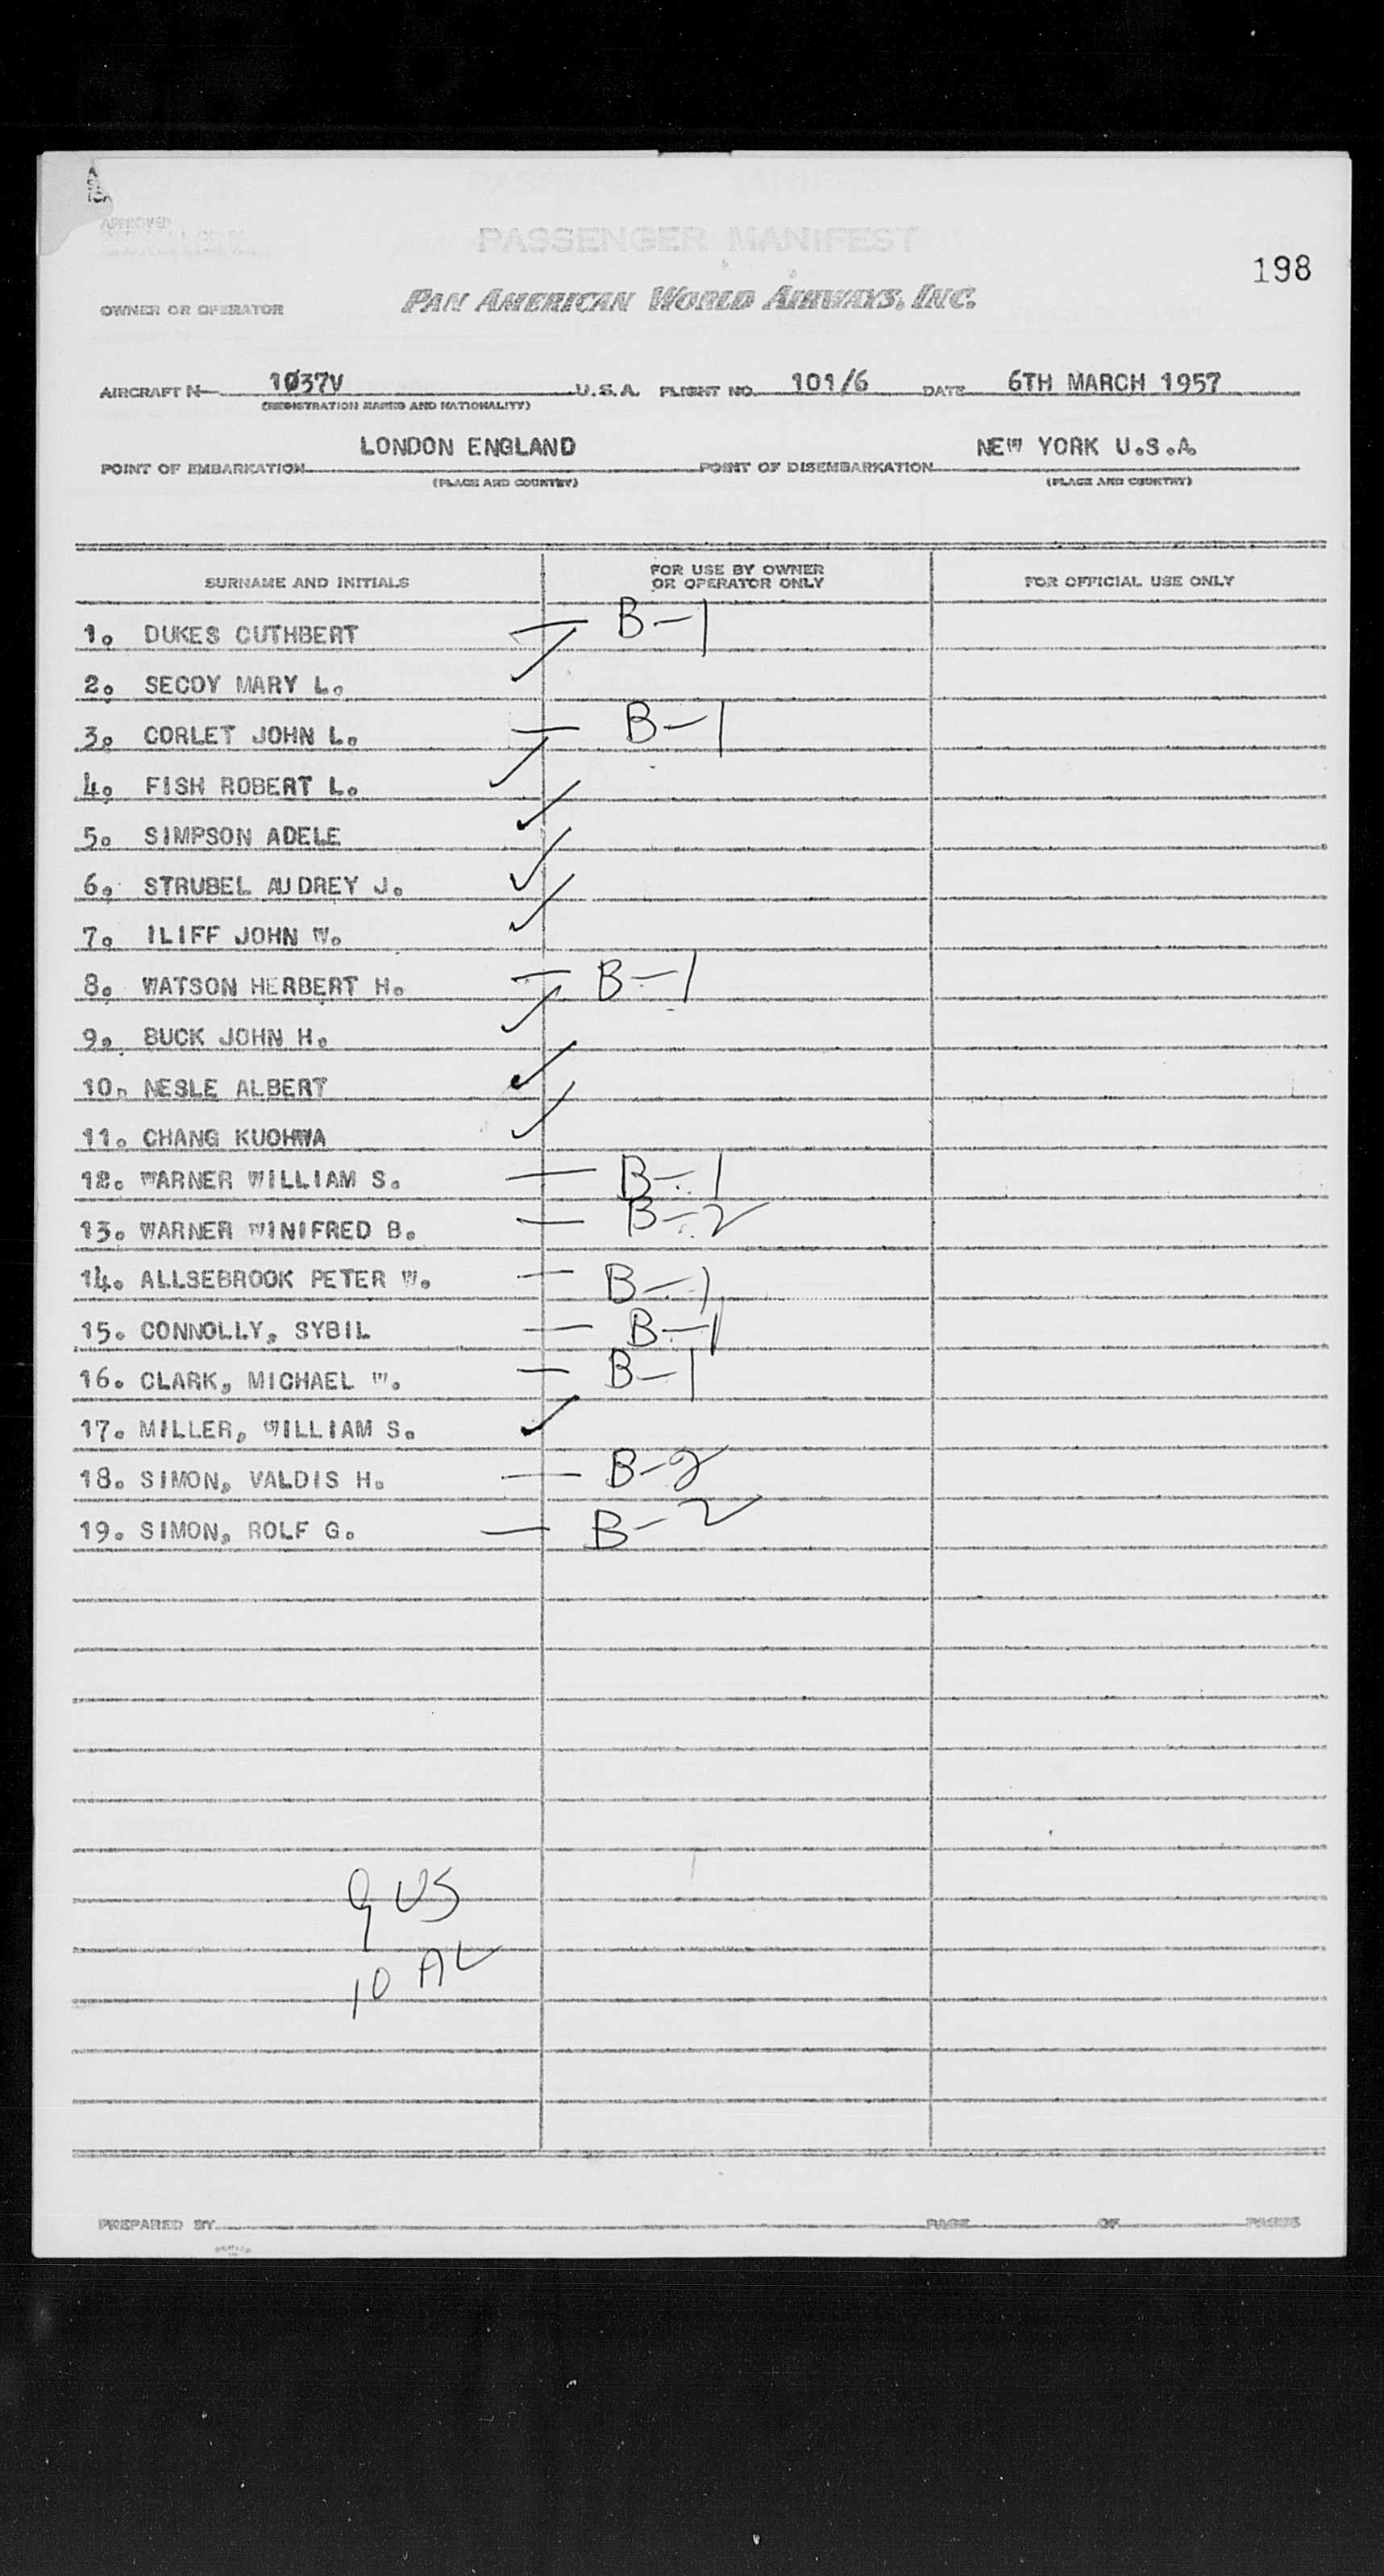 APPROVED
PASSENGER MANIFEST
198
OWNER OR OPERATOR PAN AMERICAN WORLD AIRWAYS, INC.
AIRCRAFT N- 1037V U.S.A. FLIGHT NO. 101/6 DATE 6TH MARCH 1957
(REGISTRATION MARKS AND NATIONALITY)
LONDON ENGLAND NEW YORK U.S.A.
POINT OF EMBARKATION POINT OF DISEMBARKATION
(PLACE AND COUNTRY) (PLACE AND COUNTRY)
SURNAME AND INITIALS FOR USE BY OWNER OR OPERATOR ONLY FOR OFFICIAL USE ONLY
1. DUKES CUTHBERT — B-1
2. SECOY MARY L. ✓
3. CORLET JOHN L. — B-1
4. FISH ROBERT L. ✓
5. SIMPSON ADELE ✓
6. STRUBEL AUDREY J. ✓
7. ILIFF JOHN W. ✓
8. WATSON HERBERT H. — B-1
9. BUCK JOHN H. ✓
10. NESLE ALBERT ✓
11. CHANG KUOHWA ✓
12. WARNER WILLIAM S. — B-1
13. WARNER WINIFRED B. — B-2
14. ALLSEBROOK PETER W. — B-1
15. CONNOLLY, SYBIL — B-1
16. CLARK, MICHAEL W. — B-1
17. MILLER, WILLIAM S. ✓
18. SIMON, VALDIS H. — B-2
19. SIMON, ROLF G. — B-2
9 US
10 AL
PREPARED BY PAGE OF PAGES